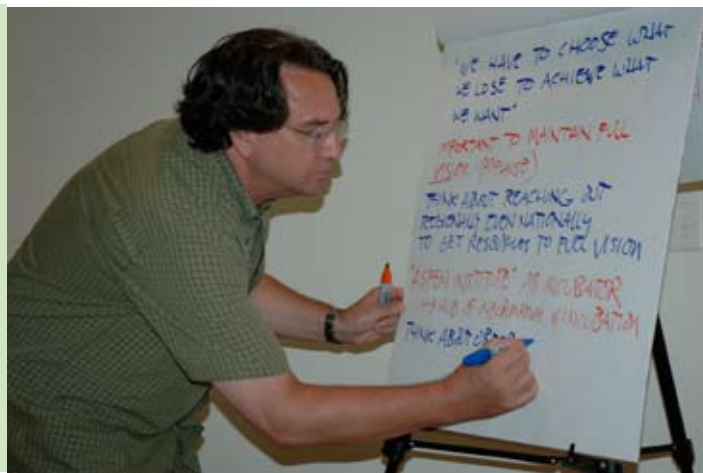 "WE HAVE TO CHOOSE WHAT
WE LOSE TO ACHIEVE WHAT
WE WANT"
IMPORTANT TO MAINTAIN FULL
VISION
THINK ABOUT REACHING OUT
REGIONALLY EVEN NATIONALLY
TO GET RESOURCES TO FULL VISION
"ASPEN INSTITUTE" AS INCUBATER
OF INCUBATION
THINK ABOUT